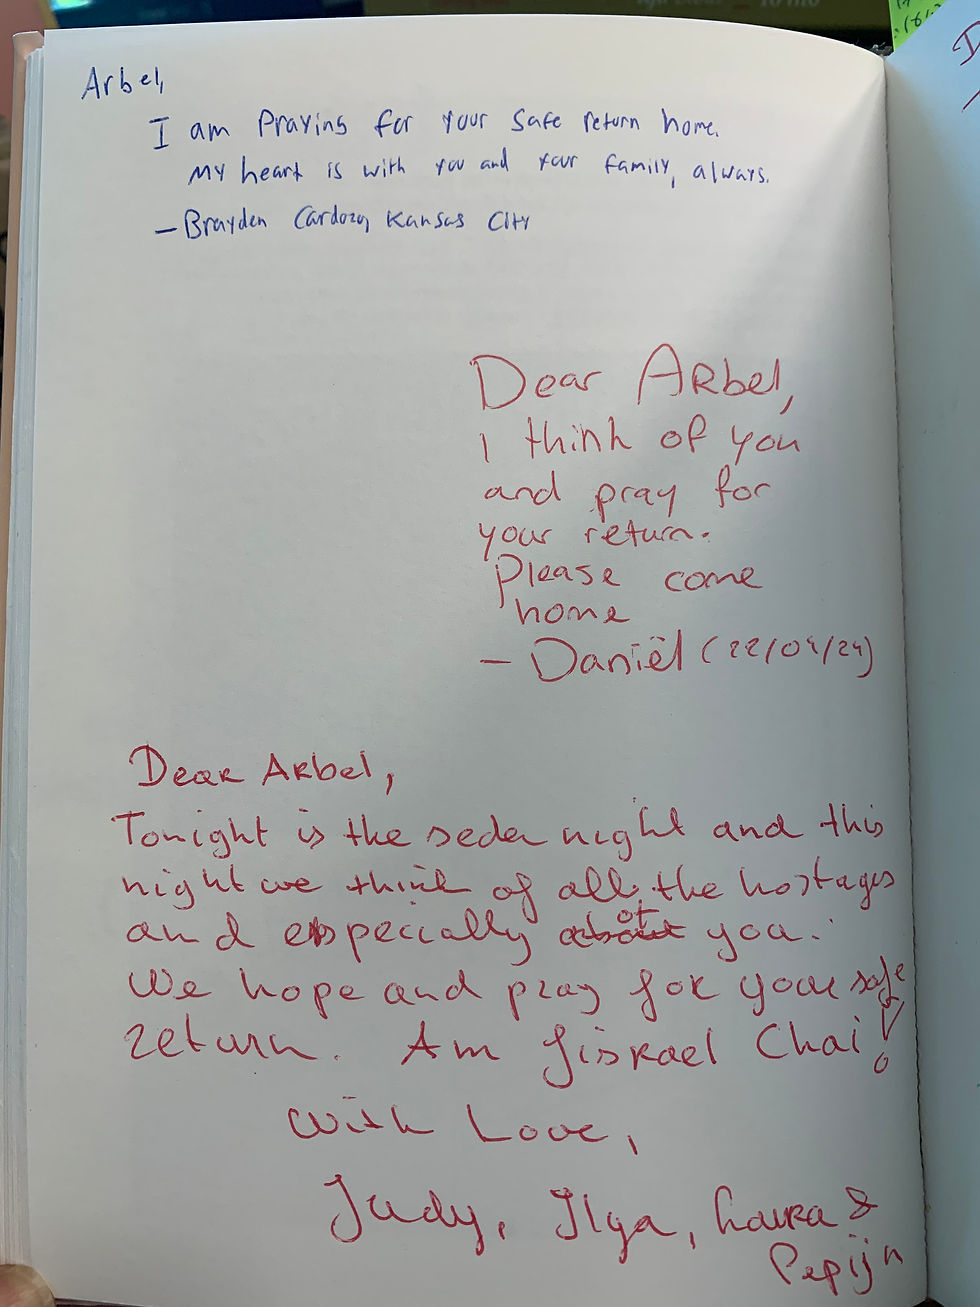 Arbel,
I am Praying for your Safe return home.
My heart is with you and your family, always.
— Brayden Cardozo, Kansas City
Dear Arbel,
I think of you
and pray for
your return.
Please come
home
— Daniël (22/04/24)
Dear Arbel,
Tonight is the seder night and this
night we think of all the hostages
and especially of you.
We hope and pray for your safe
return. Am Jisrael Chai!
With Love,
Judy, Ilya, Laura &
Pepijn